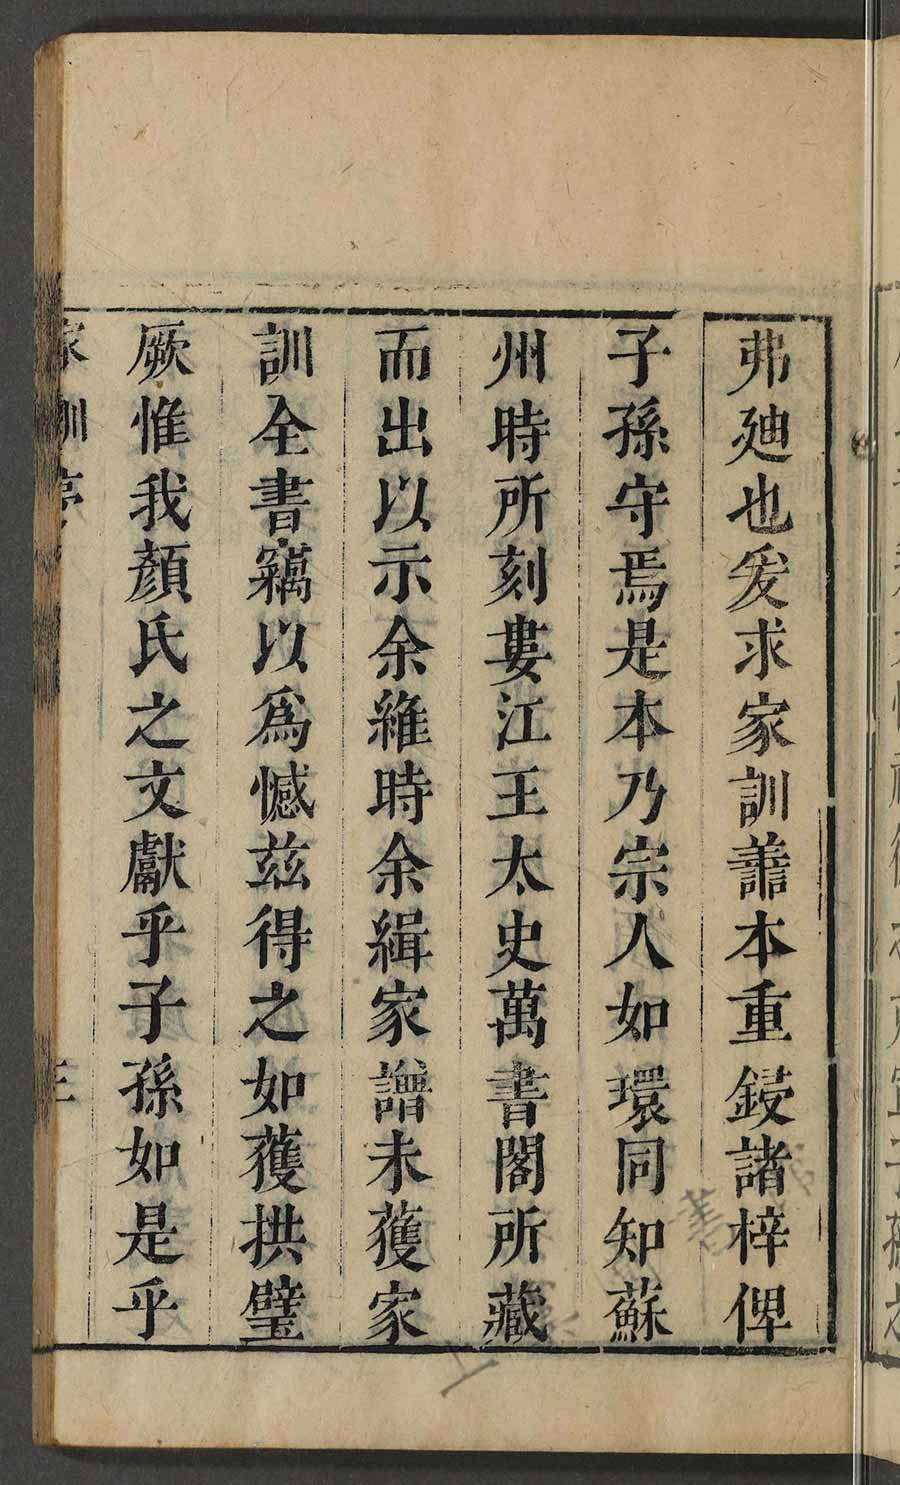 弗廸也爰求家訓善本重鋟諸梓俾
子孫守焉是本乃宗人如環同知蘇
州時所刻婁江王太史萬書閣所藏
而出以示余維時余緝家譜未獲家
訓全書竊以爲憾兹得之如獲拱璧
厥惟我顏氏之文獻乎子孫如是乎
家訓序
三